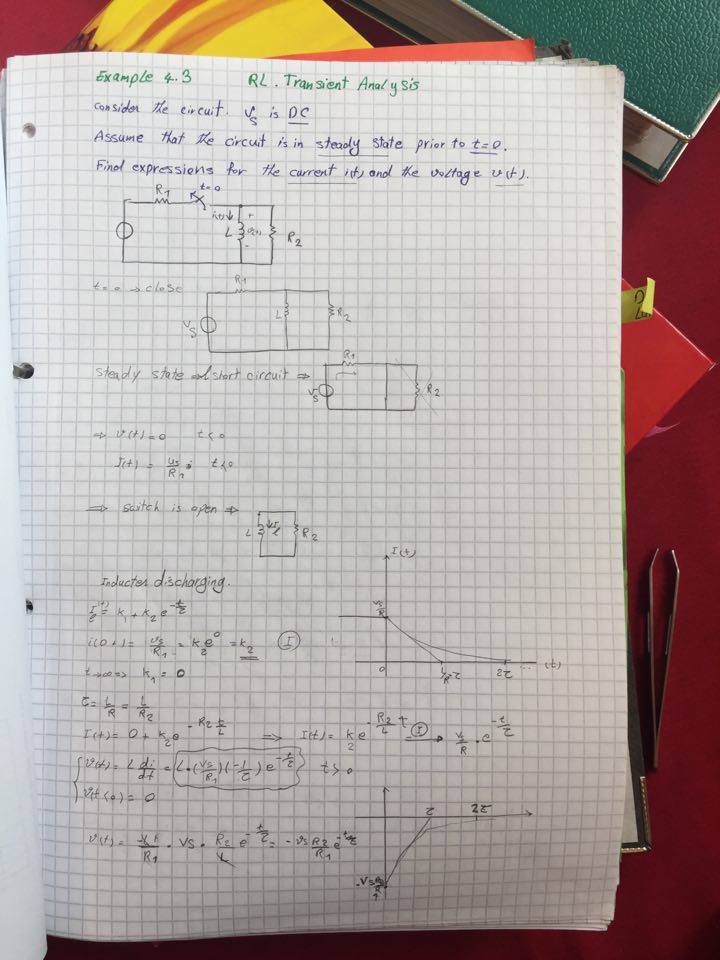 Example 4.3 RL. Transient Analysis
Consider the circuit. Vs is DC
Assume that the circuit is in steady state prior to t=0.
Find expressions for the current i(t) and the voltage v(t).
R1 t=0
i(t) ↓ + L v(t) - R2
t=0 → close
R1
Vs L R2
steady state → short circuit ⇒
R1
Vs R2
⇒ v(t)=0 t<0
I(t) = Vs/R1 t<0
⇒ switch is open ⇒
L R2
Inductor discharging.
I(t) = k1 + k2 e^(-t/τ)
i(0+) = Vs/R1 = k2 e^0 = k2 (I)
t→∞ ⇒ k1 = 0
I(t)
Vs/R
0 L/R=τ 2τ (t)
τ = L/R = L/R2
I(t) = 0 + k2 e^(-R2 t/L) ⇒ I(t) = k2 e^(-R2/L t) (I) → Vs/R · e^(-t/τ)
v(t) = L di/dt = L·(Vs/R1)(-1/τ) e^(-t/τ) t>0
v(t<0) = 0
v(t) = · VS · R2/L e^(-t/τ) = -Vs R2/R1 e^(-t/τ)
τ 2τ